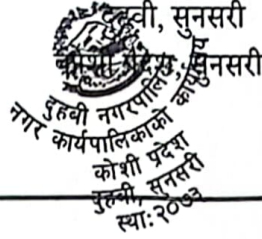 दुहवी, सुनसरी
कोशी प्रदेश, सुनसरी
दुहवी नगरपालिका
नगर कार्यपालिकाको कार्यालय
कोशी प्रदेश
दुहवी, सुनसरी
स्था: २०७३